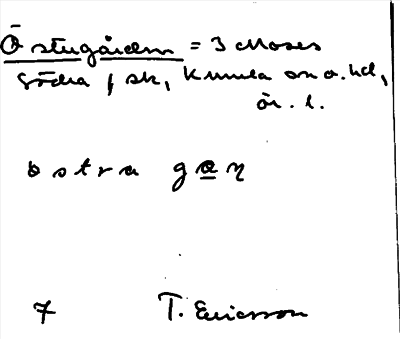 Östugården = 3 Moses
södra f sk, Kumla sn o. hd,
ör. l.
ostra gaη
7 T. Ericsson